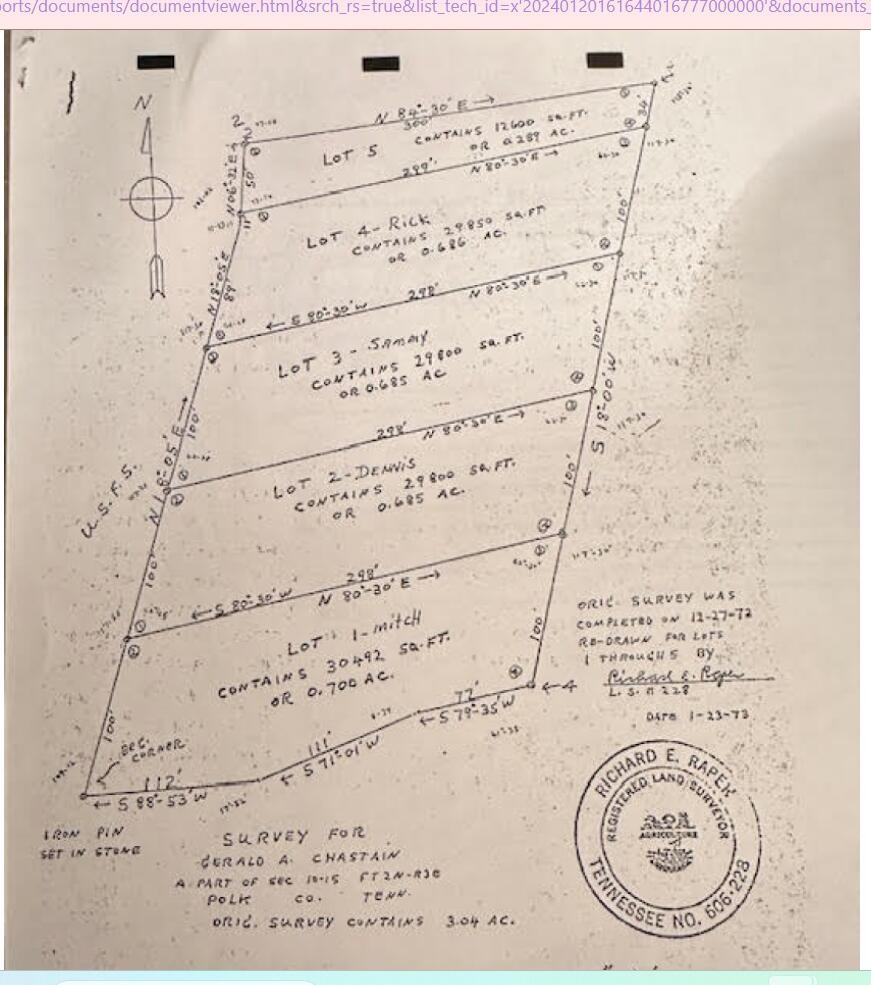 orts/documents/documentviewer.html&srch_rs=true&list_tech_id=x'20240120161644016777000000'&documents_
N
2
N 84°-30' E →
300'
LOT 5
CONTAINS 12600 SQ.FT.
OR 0.289 AC.
34'
N 06°-32' E →
50'
299'
N 80°-30' E →
11'
LOT 4-Rick
CONTAINS 29.850 SQ.FT
OR 0.686 AC.
100'
N 18°-05' E
89'
← S 80°-30' W
298'
N 80°-30' E →
LOT 3 - SAMMY
CONTAINS 29800 SQ.FT.
OR 0.685 AC
100'
← S 18°-00' W
N 18°-05' E →
100'
298'
N 80°-30' E →
U.S.F.S.
LOT 2-DENNIS
CONTAINS 29800 SQ.FT.
OR 0.685 AC.
100'
100'
← S 80°-30' W
298'
N 80°-30' E →
LOT 1-mitch
CONTAINS 30492 SQ.FT.
OR 0.700 AC.
100'
100'
ORIG. SURVEY WAS
COMPLETED ON 12-27-72
RE-DRAWN FOR LOTS
1 THROUGH 5 BY
L.S. # 228
DATE 1-23-73
←4
77'
← S 79°-35' W
111'
← S 71°-01' W
BEG.
CORNER
112'
← S 88°-53' W
IRON PIN
SET IN STONE
SURVEY FOR
GERALD A. CHASTAIN
A PART OF SEC 10-15 FT2N-R3E
POLK CO. TENN.
ORIG. SURVEY CONTAINS 3.04 AC.
RICHARD E. RAPER
REGISTERED LAND SURVEYOR
AGRICULTURE
TENNESSEE NO. 606-228